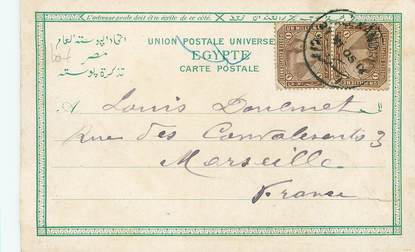 L'adresse seule doit être écrite de ce côté.
UNION POSTALE UNIVERSE
EGYPTE
CARTE POSTALE
اتحاد البوسته العام
مصر
تذكرة بوسته
A Louis
Rue des Convalescents 3
Marseille
France